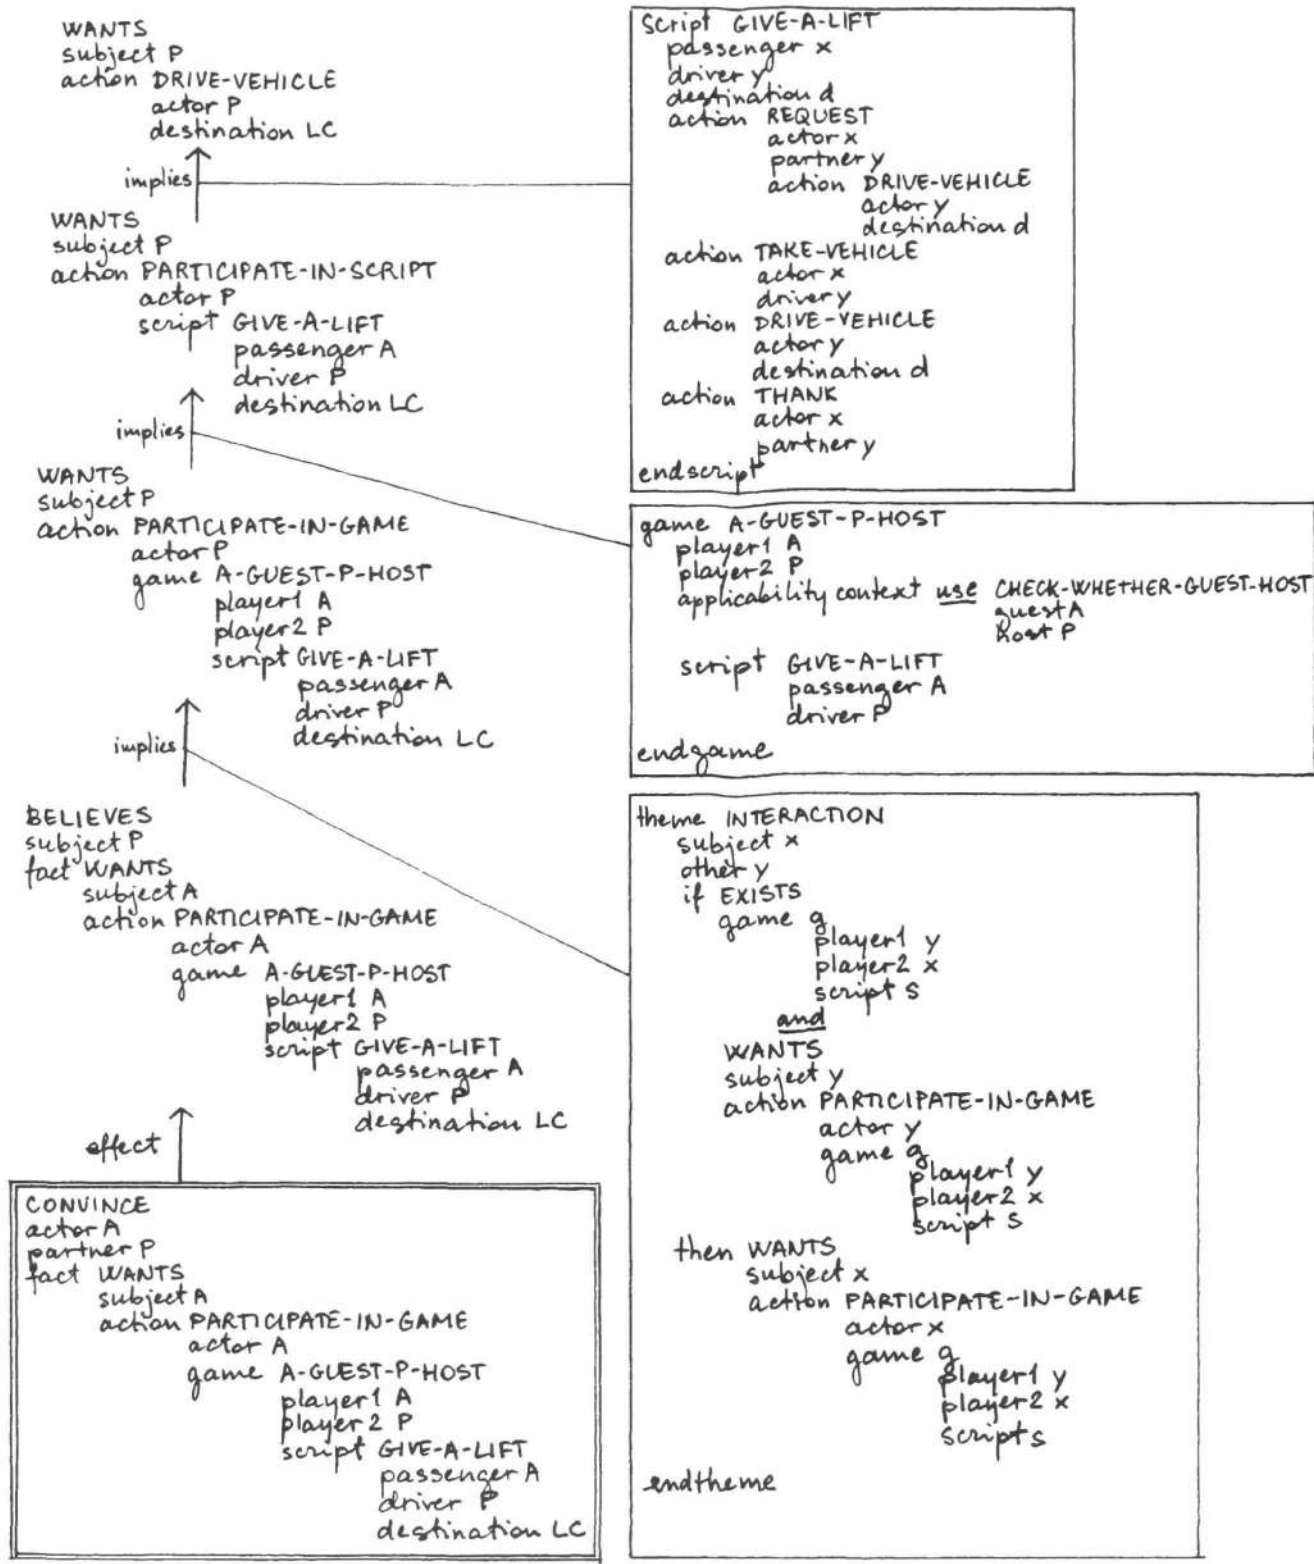 WANTS
subject P
action DRIVE-VEHICLE
actor P
destination LC
implies
WANTS
subject P
action PARTICIPATE-IN-SCRIPT
actor P
script GIVE-A-LIFT
passenger A
driver P
destination LC
implies
WANTS
subject P
action PARTICIPATE-IN-GAME
actor P
game A-GUEST-P-HOST
player1 A
player2 P
script GIVE-A-LIFT
passenger A
driver P
destination LC
implies
BELIEVES
subject P
fact WANTS
subject A
action PARTICIPATE-IN-GAME
actor A
game A-GUEST-P-HOST
player1 A
player2 P
script GIVE-A-LIFT
passenger A
driver P
destination LC
effect
CONVINCE
actor A
partner P
fact WANTS
subject A
action PARTICIPATE-IN-GAME
actor A
game A-GUEST-P-HOST
player1 A
player2 P
script GIVE-A-LIFT
passenger A
driver P
destination LC
Script GIVE-A-LIFT
passenger x
driver y
destination d
action REQUEST
actor x
partner y
action DRIVE-VEHICLE
actor y
destination d
action TAKE-VEHICLE
actor x
driver y
action DRIVE-VEHICLE
actor y
destination d
action THANK
actor x
partner y
endscript
game A-GUEST-P-HOST
player1 A
player2 P
applicability context use CHECK-WHETHER-GUEST-HOST
guest A
host P
script GIVE-A-LIFT
passenger A
driver P
endgame
theme INTERACTION
subject x
other y
if EXISTS
game g
player1 y
player2 x
script s
and
WANTS
subject y
action PARTICIPATE-IN-GAME
actor y
game g
player1 y
player2 x
script s
then WANTS
subject x
action PARTICIPATE-IN-GAME
actor x
game g
player1 y
player2 x
script s
endtheme